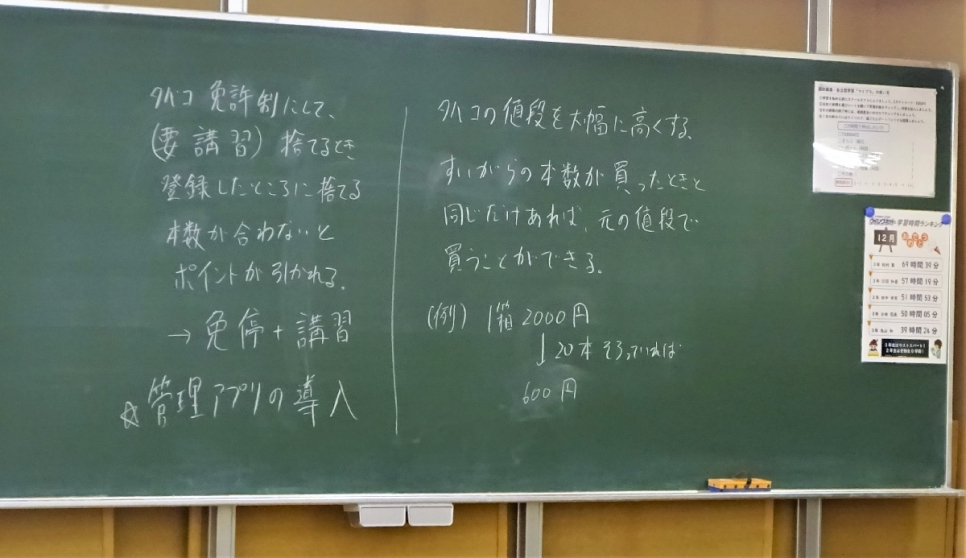 タバコ 免許制にして、
(要講習) 捨てるとき
登録したところに捨てる
本数が合わないと
ポイントが引かれる。
→ 免停 + 講習
☆管理アプリの導入
タバコの値段を大幅に高くする。
すいがらの本数が買ったときと
同じだけあれば、元の値段で
買うことができる。
(例) 1箱 2000円
↓20本そろっていれば
600円
学習時間ランキング
12月
69時間39分
57時間19分
51時間53分
50時間05分
39時間24分